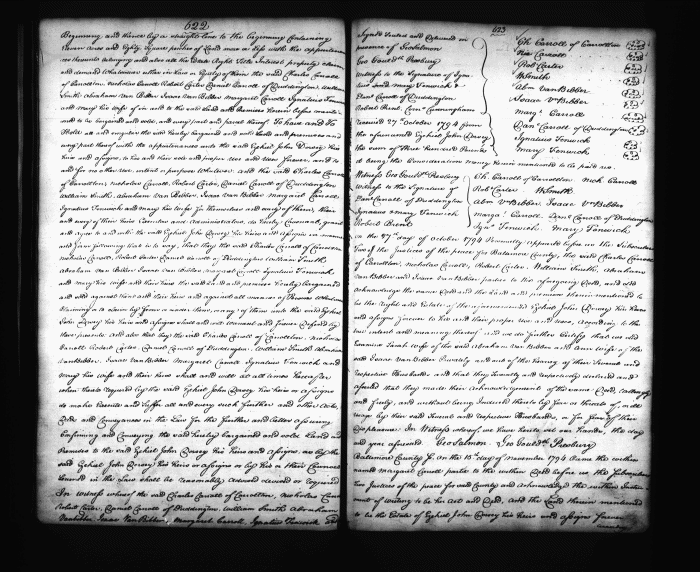 622
Beginning and thence by a straight line to the beginning Containing
Seven acres and Eighty Square perches of Land more or less with the appurtenances
and demand Whatsoever of them the said Charles Carroll
of Carrollton, Nicholas Carroll Robert Carter Daniel Carroll of Duddington, William
Smith Abraham Van Bibber Isaac Van Bibber Margaret Carroll Ignatius Fenwick
and Mary his Wife of in and to the said Land and premises herein before
To have and To
Hold all and singular the said hereby bargained and sold Land and premises and
every part thereof with the appurtenances unto the said Ezekiel John Dorsey his
heirs and assigns, to his and their sole and proper use and uses forever and to
and for no other use, intent or purpose Whatever. And the said Charles Carroll
of Carrollton, Nicholas Carroll, Robert Carter, Daniel Carroll of Duddington
William Smith, Abraham Van Bibber, Isaac Van Bibber Margaret Carroll
Ignatius Fenwick and Mary his Wife for themselves and every of them, their
and every of their heirs Executors and Administrators, do hereby Covenant, grant
and agree to and with the said Ezekiel John Dorsey his heirs and assigns in manner
and form following that is to say, that they the said Charles Carroll of Carrollton
Nicholas Carroll, Robert Carter, Daniel Carroll of Duddington William Smith
Abraham Van Bibber Isaac Van Bibber, Margaret Carroll Ignatius Fenwick
and Mary his Wife and their heirs the said Land and premises hereby bargained
and sold against them and their heirs and against all manner of Persons Whatsoever
Claiming or to claim by from or under them, or any of them unto the said Ezekiel
John Dorsey his heirs and assigns shall and will warrant and forever Defend by
these presents. and also that they the said Charles Carroll of Carrollton, Nicholas
Carroll Robert Carter, Daniel Carroll of Duddington, William Smith Abraham
VanBibber, Isaac VanBibber Margaret Carroll Ignatius Fenwick and
Mary his Wife and their heirs shall and will at all times hereafter
when thereto required by the said Ezekiel John Dorsey his heirs or assigns
do make Execute and suffer all and every such further and other Acts,
Deeds and Conveyances in the Law for the further and better assuring
Confirming and Conveying the said hereby bargained and sold Land and
Premises to the said Ezekiel John Dorsey his heirs and assigns, as by the
said Ezekiel John Dorsey his heirs or assigns or by his or their Counsel
learned in the Law shall be reasonably advised devised or required
In witness whereof the said Charles Carroll of Carrollton, Nicholas Carroll
Robert Carter, Daniel Carroll of Duddington, William Smith Abraham
Vanbibber Isaac Van Bibber, Margaret Carroll Ignatius Fenwick and
623
Signed Sealed and Delivered in
presence of Geo Salmon
Geo Gould Presbury
Witness to the Signature of Igna-
tius and Mary Fenwick &
Danl Carroll of Duddington
Robert Brent
Received 27th October 1794 from
the aforenamed Ezekiel John Dorsey
the sum of
it being the Consideration money herein mentioned to be paid us
Ch Carroll of Carrollton
Nick Carroll
Rob Carter
W Smith
Abm VanBibber
Isaac Vn Bibber
Mary Carroll
Danl Carroll of Duddington
Ignatius Fenwick
Mary Fenwick
Witness Geo Gould Presbury
Witness to the Signature of
Danl Carroll of Duddington
Ignatius & Mary Fenwick
Robert Brent
Ch. Carroll of Carrollton Nick Carroll
Rob Carter W Smith
Abm Vn Bibber Isaac Vn Bibber
Marga Carroll Danl Carroll of Duddington
Igns Fenwick. Mary Fenwick
on the 27th day of October 1794 Personally appeared before us the Subscribers
Two of the Justices of the peace for Baltimore County, the said Charles Carroll
of Carrollton, Nicholas Carroll, Robert Carter, William Smith, Abraham
Van Bibber and Isaac Van Bibber parties to the foregoing Deed, and
acknowledge the same Deed and the Land and premises therein mentioned to
be the Right and Estate of the aforenamed Ezekiel John Dorsey his heirs
and assigns forever to his and their proper use and uses, According to the
true intent and meaning thereof and we do further Certify that we did
Examine Sarah Wife of the said Abraham Van Bibber and Ann Wife of the
said Isaac Van Bibber Privately and out of the hearing of their several and
respective Husbands and that they severally and respectively declared and
affirmed that they made their Acknowledgement of the same Deed, willingly
and freely, and without being Induced thereto by fear or threats of, or ill
usage by their said several and respective Husbands, or for fear of their
Displeasure In Witness whereof we have hereto set our hands, the day
and year aforesaid Geo Salmon Geo Gould Presbury
Baltimore County Sc. on the 15th day of November 1794 Came the within
named Margaret Carroll partie to the within Deed before us, the Subscribers
two Justices of the peace for said County and acknowledged the within Instru
ment of writing to be her act and Deed, and the Land therein mentioned
to be the Estate of Ezekiel John Dorsey his heirs and assigns forever